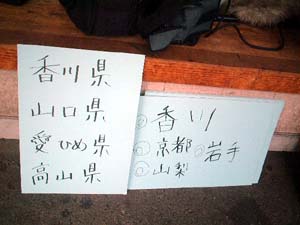 香川県
山口県
愛ひめ県
高山県
②香川
①京都 ③岩手
①山梨